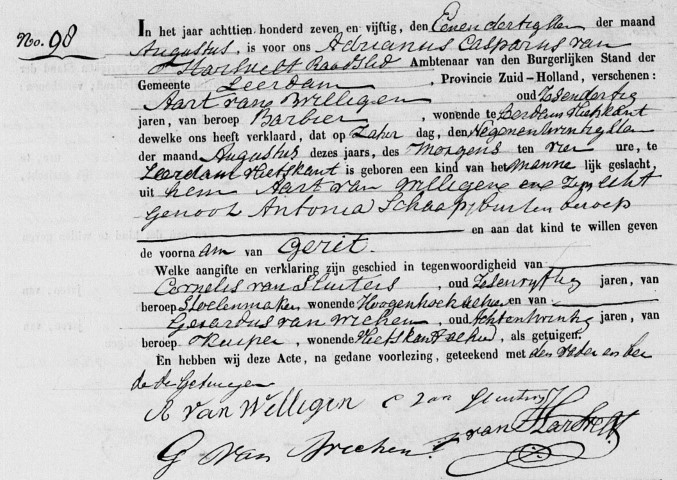 No. 98
In het jaar achttien honderd zeven en vijftig, den Eenendertigsten der maand
Augustus, is voor ons Adrianus Casparus van
Raadslid Ambtenaar van den Burgerlijken Stand der
Gemeente Leerdam, Provincie Zuid-Holland, verschenen:
Aart van Willigen oud Zesendertig
jaren, van beroep Barbier, wonende te Leerdam Rietskant
dewelke ons heeft verklaard, dat op Zatur dag, den Negenentwintigsten
der maand Augustus dezes jaars, des Morgens ten vier ure, te
Leerdam Rietskant is geboren een kind van het manne lijk geslacht,
uit hem Aart van Willigen en Zijn Echt
genoot Antonia Schaap, buiten beroep
en aan dat kind te willen geven
de voornaam van Gerit.
Welke aangifte en verklaring zijn geschied in tegenwoordigheid van
Cornelis van Sluiters, oud Zesenvyftig jaren, van
beroep Stoelenmaker, wonende alhier en van
Gerardus van Wichen, oud Achtentwintig jaren, van
beroep Kuiper, wonende Rietskant alhier, als getuigen.
En hebben wij deze Acte, na gedane voorlezing, geteekend met den vader en bei
de de Getuigen
A van Welligen C
G van Wichen. van